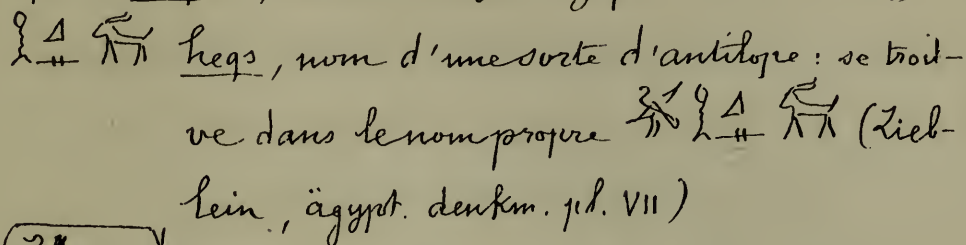 𓎛𓈎𓊃 heqs, nom d'une sorte d'antilope : se trou-
ve dans le nom propre 𓎛𓈎𓊃 (Lieb-
lein, ägypt. denkm. pl. VII)